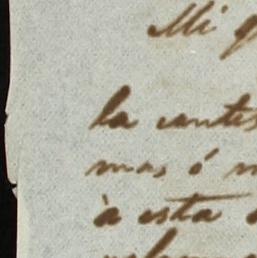 Mi q
la contes
mas ó m
à esta